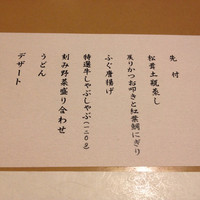 先付
松茸土瓶蒸し
戻りかつお叩きと紅葉鯛にぎり
ふぐ唐揚げ
特選牛しゃぶしゃぶ(一二〇g)
刻み野菜盛り合わせ
うどん
デザート